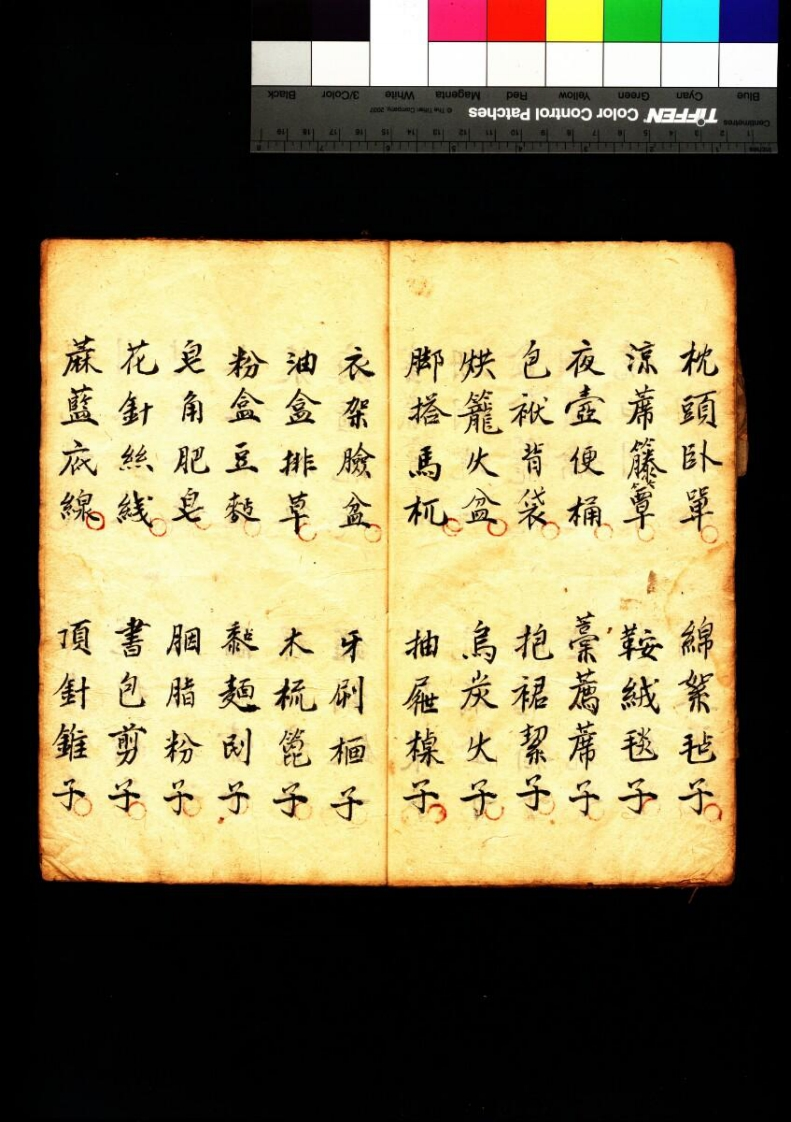 枕頭卧單
綿絮毡子
涼蓆籐簟
鞍絨毯子
夜壺便桶
藁薦蓆子
包袱背袋
抱裙絜子
烘籠火盆
烏炭火子
脚搭馬杌
抽屜槕子
衣架臉盆
牙刷栀子
油盒排草
木梳篦子
粉盒豆
黏麵刷子
皂角肥皂
胭脂粉子
花針絲綫
書包剪子
蔴藍底線
頂針錐子
Blue Cyan Green Yellow Red Magenta White 3/Color Black
TIFFEN Color Control Patches
© The Tiffen Company, 2007
Centimetres
Inches